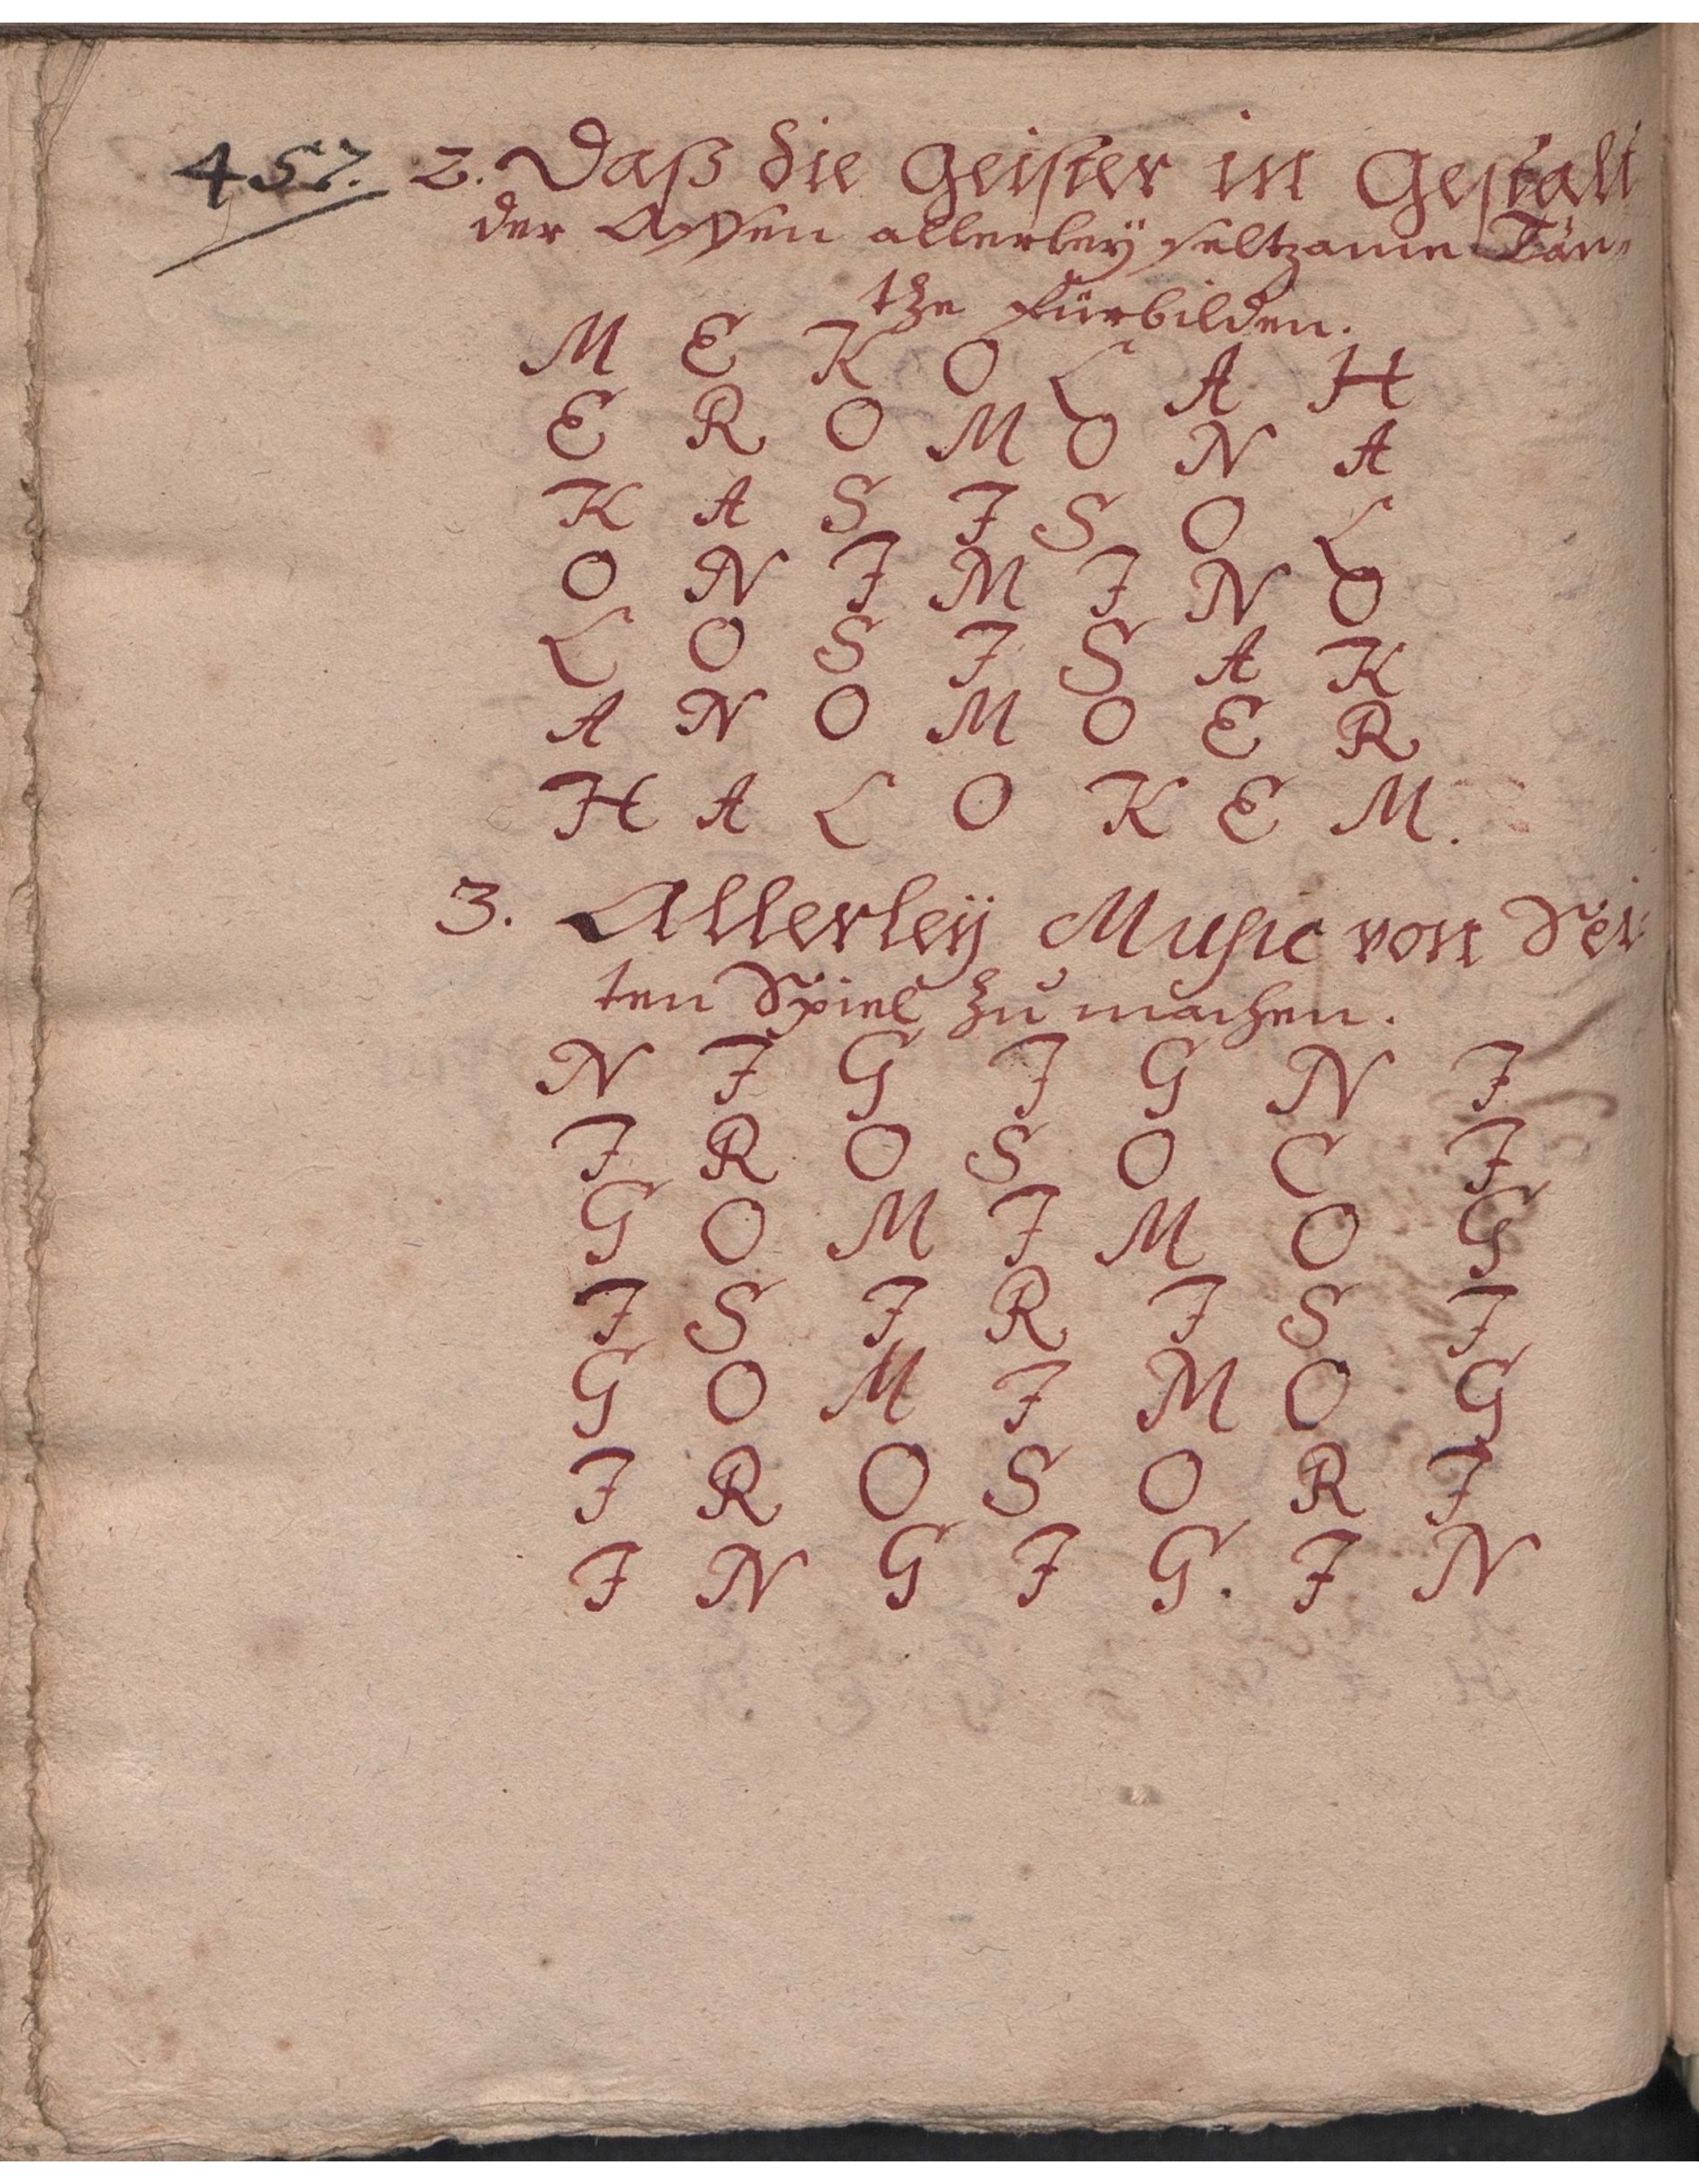 457. 2. Daß die Geister in Gestalt
der Affen allerley seltzame Tän-
tze fürbilden.
M E K O L A H
E R O M O N A
K A S I S O L
O N I M I N O
L O S I S A K
A N O M O E R
H A L O K E M.
3. Allerley Music von Sei-
ten Spiel zu machen.
N I G I G N I
I R O S O C I
G O M I M O G
I S I R I S I
G O M I M O G
I R O S O R I
I N G I G. I N